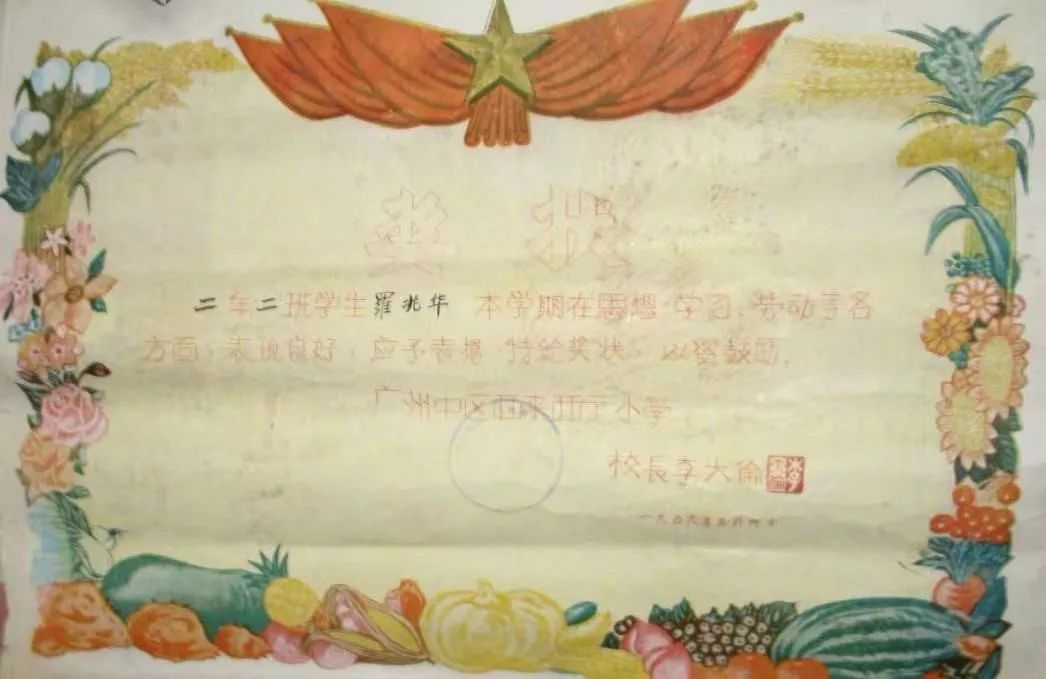 奖状
二年二班学生羅兆华 本学期在思想、学习、劳动等各
方面，表现良好，应予表揚，特给奖状，以资鼓励。
广州中区 小学
校長李大倫
一九五九年 月 日